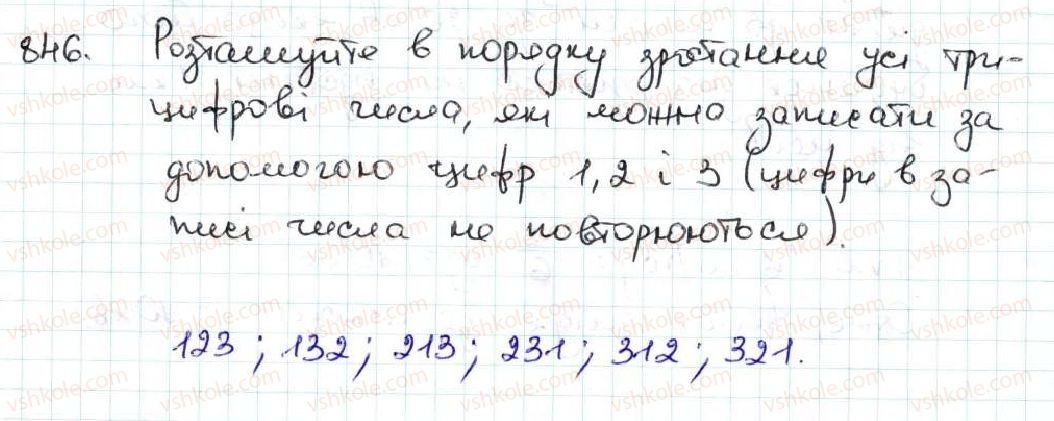 846. Розташуйте в порядку зростання усі три-
цифрові числа, які можна записати за
допомогою цифр 1, 2 і 3 (цифри в за-
писі числа не повторюються).
123 ; 132 ; 213 ; 231 ; 312 ; 321.